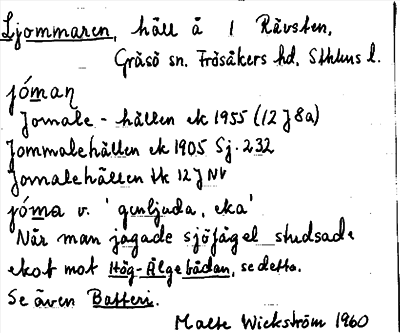 Ljommaren, häll å 1 Rävsten,
Gräsö sn. Frösåkers hd. Sthlms l.
jóman
Jomale-hällen ek 1955 (12 J 8a)
Jommalehällen ek 1905 Sj. 232
Jomalehällen tk 12 J NV
jóma v. 'genljuda, eka'
När man jagade sjöfågel studsade
ekot mot Hög-Älgebådan, se detta.
Se även Batteri.
Malte Wickström 1960